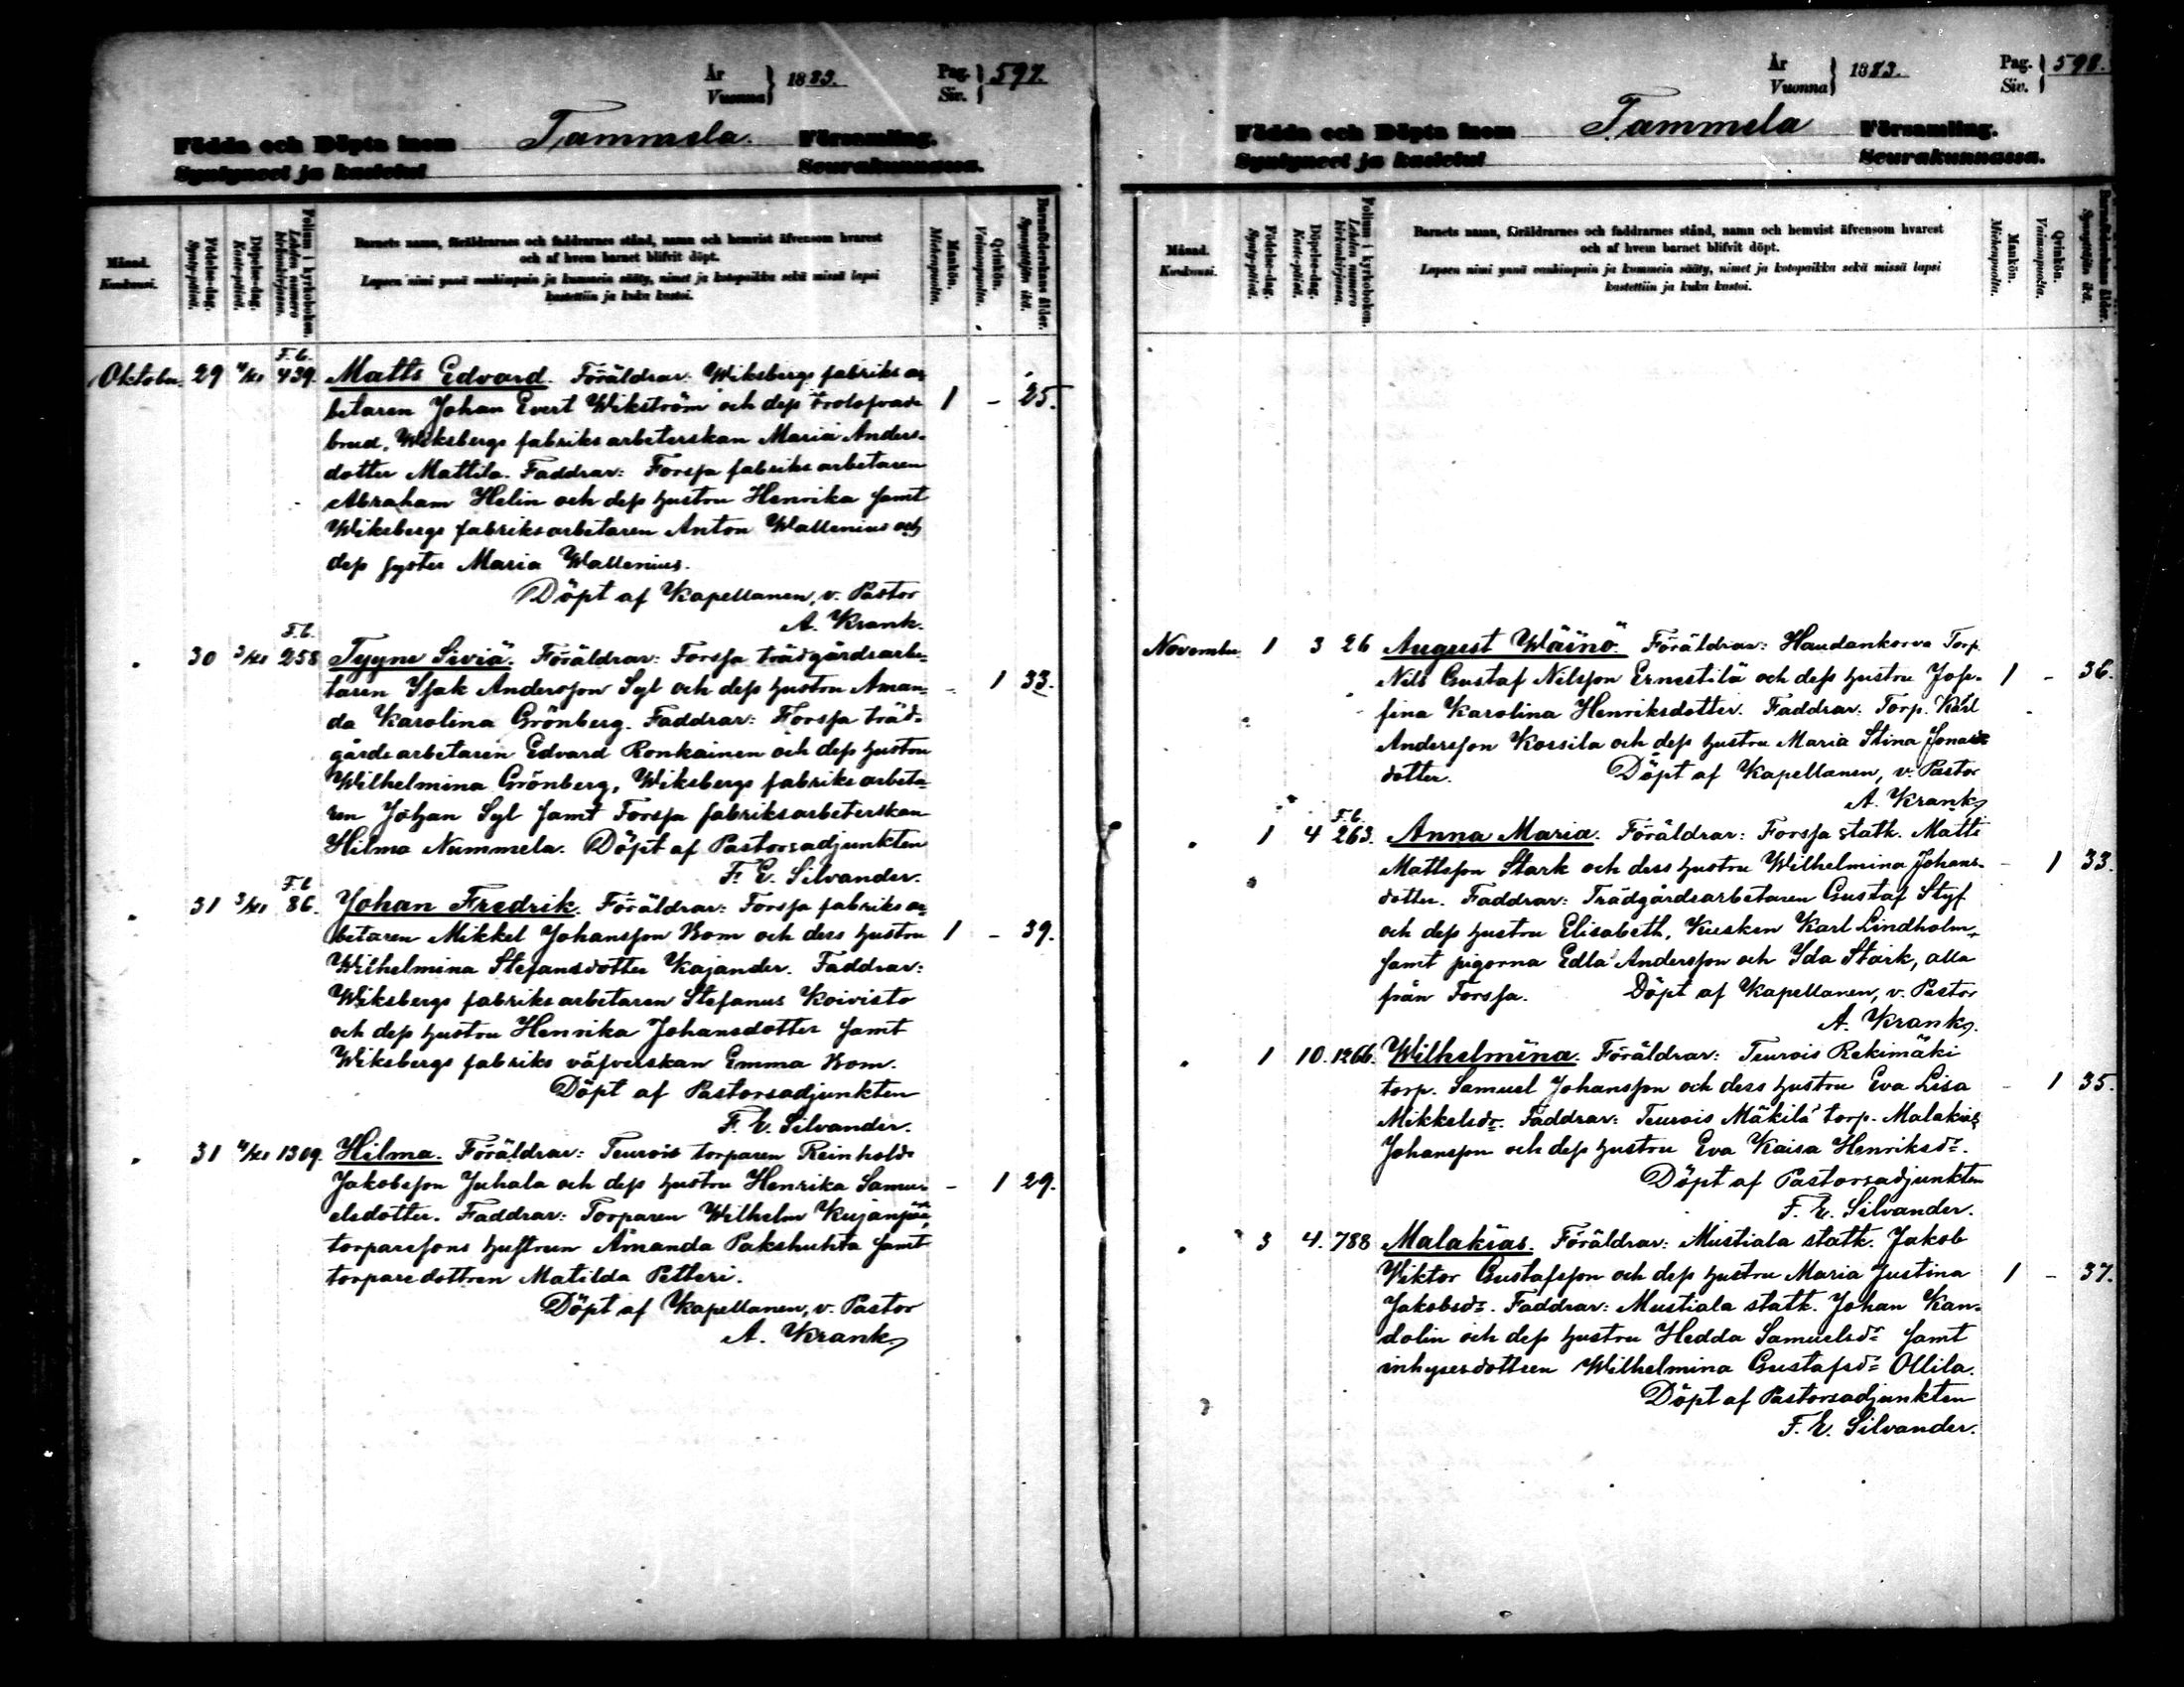 År
Vuonna } 1883.
Pag.
Siv. } 597.
Födda och Döpta inom Tammela. Församling.
Syntyneet ja kastetut Seurakunnassa.
Månad.
Kuukausi.
Födelse-dag.
Synty-päivä.
Döpelse-dag.
Kaste-päivä.
Folium i kyrkoboken.
Lehden numero kirkonkirjassa.
Barnets namn, föräldrarnes och faddrarnes stånd, namn och hemvist äfvensom hvarest
och af hvem barnet blifvit döpt.
Lapsen nimi ynnä vanhinpain ja kummein sääty, nimet ja kotopaikka sekä missä lapsi
kastettiin ja kuka kastoi.
Mankön.
Miehenpuolta.
Qvinkön.
Vaimonpuolta.
Barnaföderskans ålder.
Synnyttäjän ikä.
F. b.
Oktober 29 4/XI 439. Matts Edvard. Föräldrar: Wiksbergs fabriks ar
betaren Johan Evert Wikström och dess trolofvade 1 - 25.
brud, Wiksbergs fabriks arbeterskan Maria Anders-
dotter Mattila. Faddrar: Forssa fabriks arbetaren
Abraham Helin och dess hustru Henrika samt
Wiksbergs fabriksarbetaren Anton Wallenius och
dess syster Maria Wallenius.
Döpt af Kapellanen, v. Pastor
A. Krank.
F. b.
" 30 3/XI 258 Tyyne Siviä. Föräldrar: Forssa trädgårdsarbe-
taren Isak Andersson Syl och dess hustru Aman- - 1 33.
da Karolina Grönberg. Faddrar: Forssa träd-
gårdsarbetaren Edvard Ronkainen och dess hustru
Wilhelmina Grönberg, Wiksbergs fabriks arbeta-
ren Johan Syl samt Forssa fabriksarbeterskan
Hilma Nummela. Döpt af Pastorsadjunkten
F. E. Silvander.
F. b
" 31 3/XI 86. Johan Fredrik. Föräldrar: Forssa fabriks ar
betaren Mikkel Johansson Bom och dess hustru 1 - 39.
Wilhelmina Stefansdotter Kajander. Faddrar:
Wiksbergs fabriks arbetaren Stefanus Koivisto
och dess hustru Henrika Johansdotter samt
Wiksbergs fabriks väfverskan Emma Bom.
Döpt af Pastorsadjunkten
F. E. Silvander.
" 31 4/XI 1309. Hilma. Föräldrar: Teurois torparen Reinhold
Jakobsson Juhala och dess hustru Henrika Samu- - 1 29.
elsdotter. Faddrar: Torparen Wilhelm Kujanpää,
torparesons hustrun Amanda Pakshuhta samt
torparedottren Matilda Petteri.
Döpt af Kapellanen, v. Pastor
A. Krank
År
Vuonna } 1883.
Pag.
Siv. } 598.
Födda och Döpta inom Tammela Församling.
Syntyneet ja kastetut Seurakunnassa.
Månad.
Kuukausi.
Födelse-dag.
Synty-päivä.
Döpelse-dag.
Kaste-päivä.
Folium i kyrkoboken.
Lehden numero kirkonkirjassa.
Barnets namn, föräldrarnes och faddrarnes stånd, namn och hemvist äfvensom hvarest
och af hvem barnet blifvit döpt.
Lapsen nimi ynnä vanhinpain ja kummein sääty, nimet ja kotopaikka sekä missä lapsi
kastettiin ja kuka kastoi.
Mankön.
Miehenpuolta.
Qvinkön.
Vaimonpuolta.
Barnaföderskans ålder.
Synnyttäjän ikä.
November 1 3 26 August Wäinö. Föräldrar: Haudankorva Torp.
Nils Gustaf Nilsson Ernestilä och dess hustru Jose- 1 - 36.
fina Karolina Henriksdotter. Faddrar: Torp. Karl
Andersson Kossila och dess hustru Maria Stina Jonas-
dotter. Döpt af Kapellanen, v. Pastor
A. Krank
F. b.
" 1 4 263. Anna Maria. Föräldrar: Forssa statk. Matti
Mattsson Stark och dess hustru Wilhelmina Johans- - 1 33.
dotter. Faddrar: Trädgårdsarbetaren Gustaf Styf
och dess hustru Elisabeth, Kusken Karl Lindholm,
samt pigorna Edla Andersson och Ida Stark, alla
från Forssa. Döpt af Kapellanen, v. Pastor
A. Krank.
" 1 10. 1266. Wilhelmina. Föräldrar: Teurois Rekimäki
torp. Samuel Johansson och dess hustru Eva Lisa - 1 35.
Mikkelsdr. Faddrar: Teurois Mäkilä torp. Malakias
Johansson och dess hustru Eva Kaisa Henriksdr.
Döpt af Pastorsadjunkten
F. E. Silvander.
" 3 4. 788 Malakias. Föräldrar: Mustiala statk. Jakob
Wiktor Gustafsson och dess hustru Maria Justina 1 - 37.
Jakobsdr. Faddrar: Mustiala statk. Johan Kan-
dolin och dess hustru Hedda Samuelsdr samt
inhysesdottren Wilhelmina Gustafsdr Ollila.
Döpt af Pastorsadjunkten
F. E. Silvander.